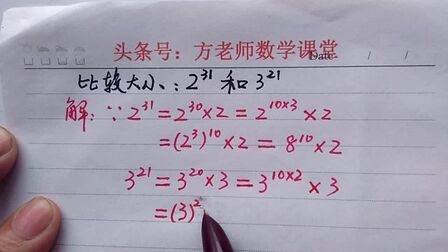 头条号：方老师数学课堂
Date / /
比较大小：2³¹ 和 3²¹
解：∵ 2³¹ = 2³⁰×2 = 2¹⁰ˣ³ ×2
= (2³)¹⁰×2 = 8¹⁰×2
3²¹ = 3²⁰×3 = 3¹⁰ˣ² ×3
= (3)²